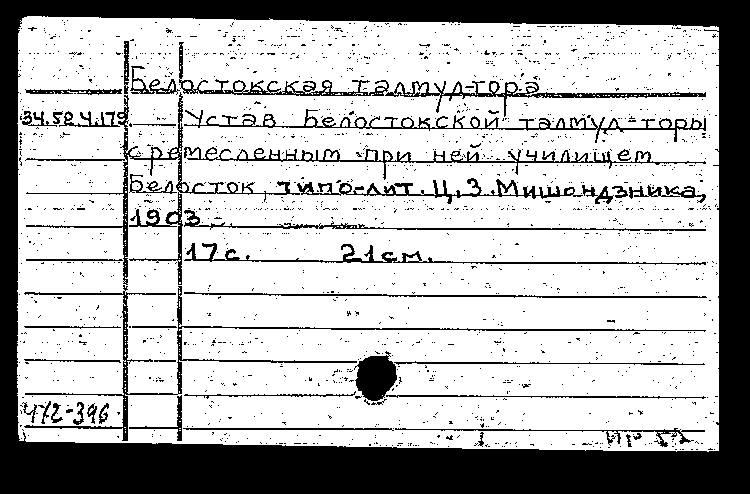 Белостокская талмуд-тора
34.52.4.179 Устав Белостокской талмуд-торы
с ремесленным при ней училищем.
Белосток, типо-лит. Ц.З. Мишондзника,
1903.
17 с. 21 см.
472-396